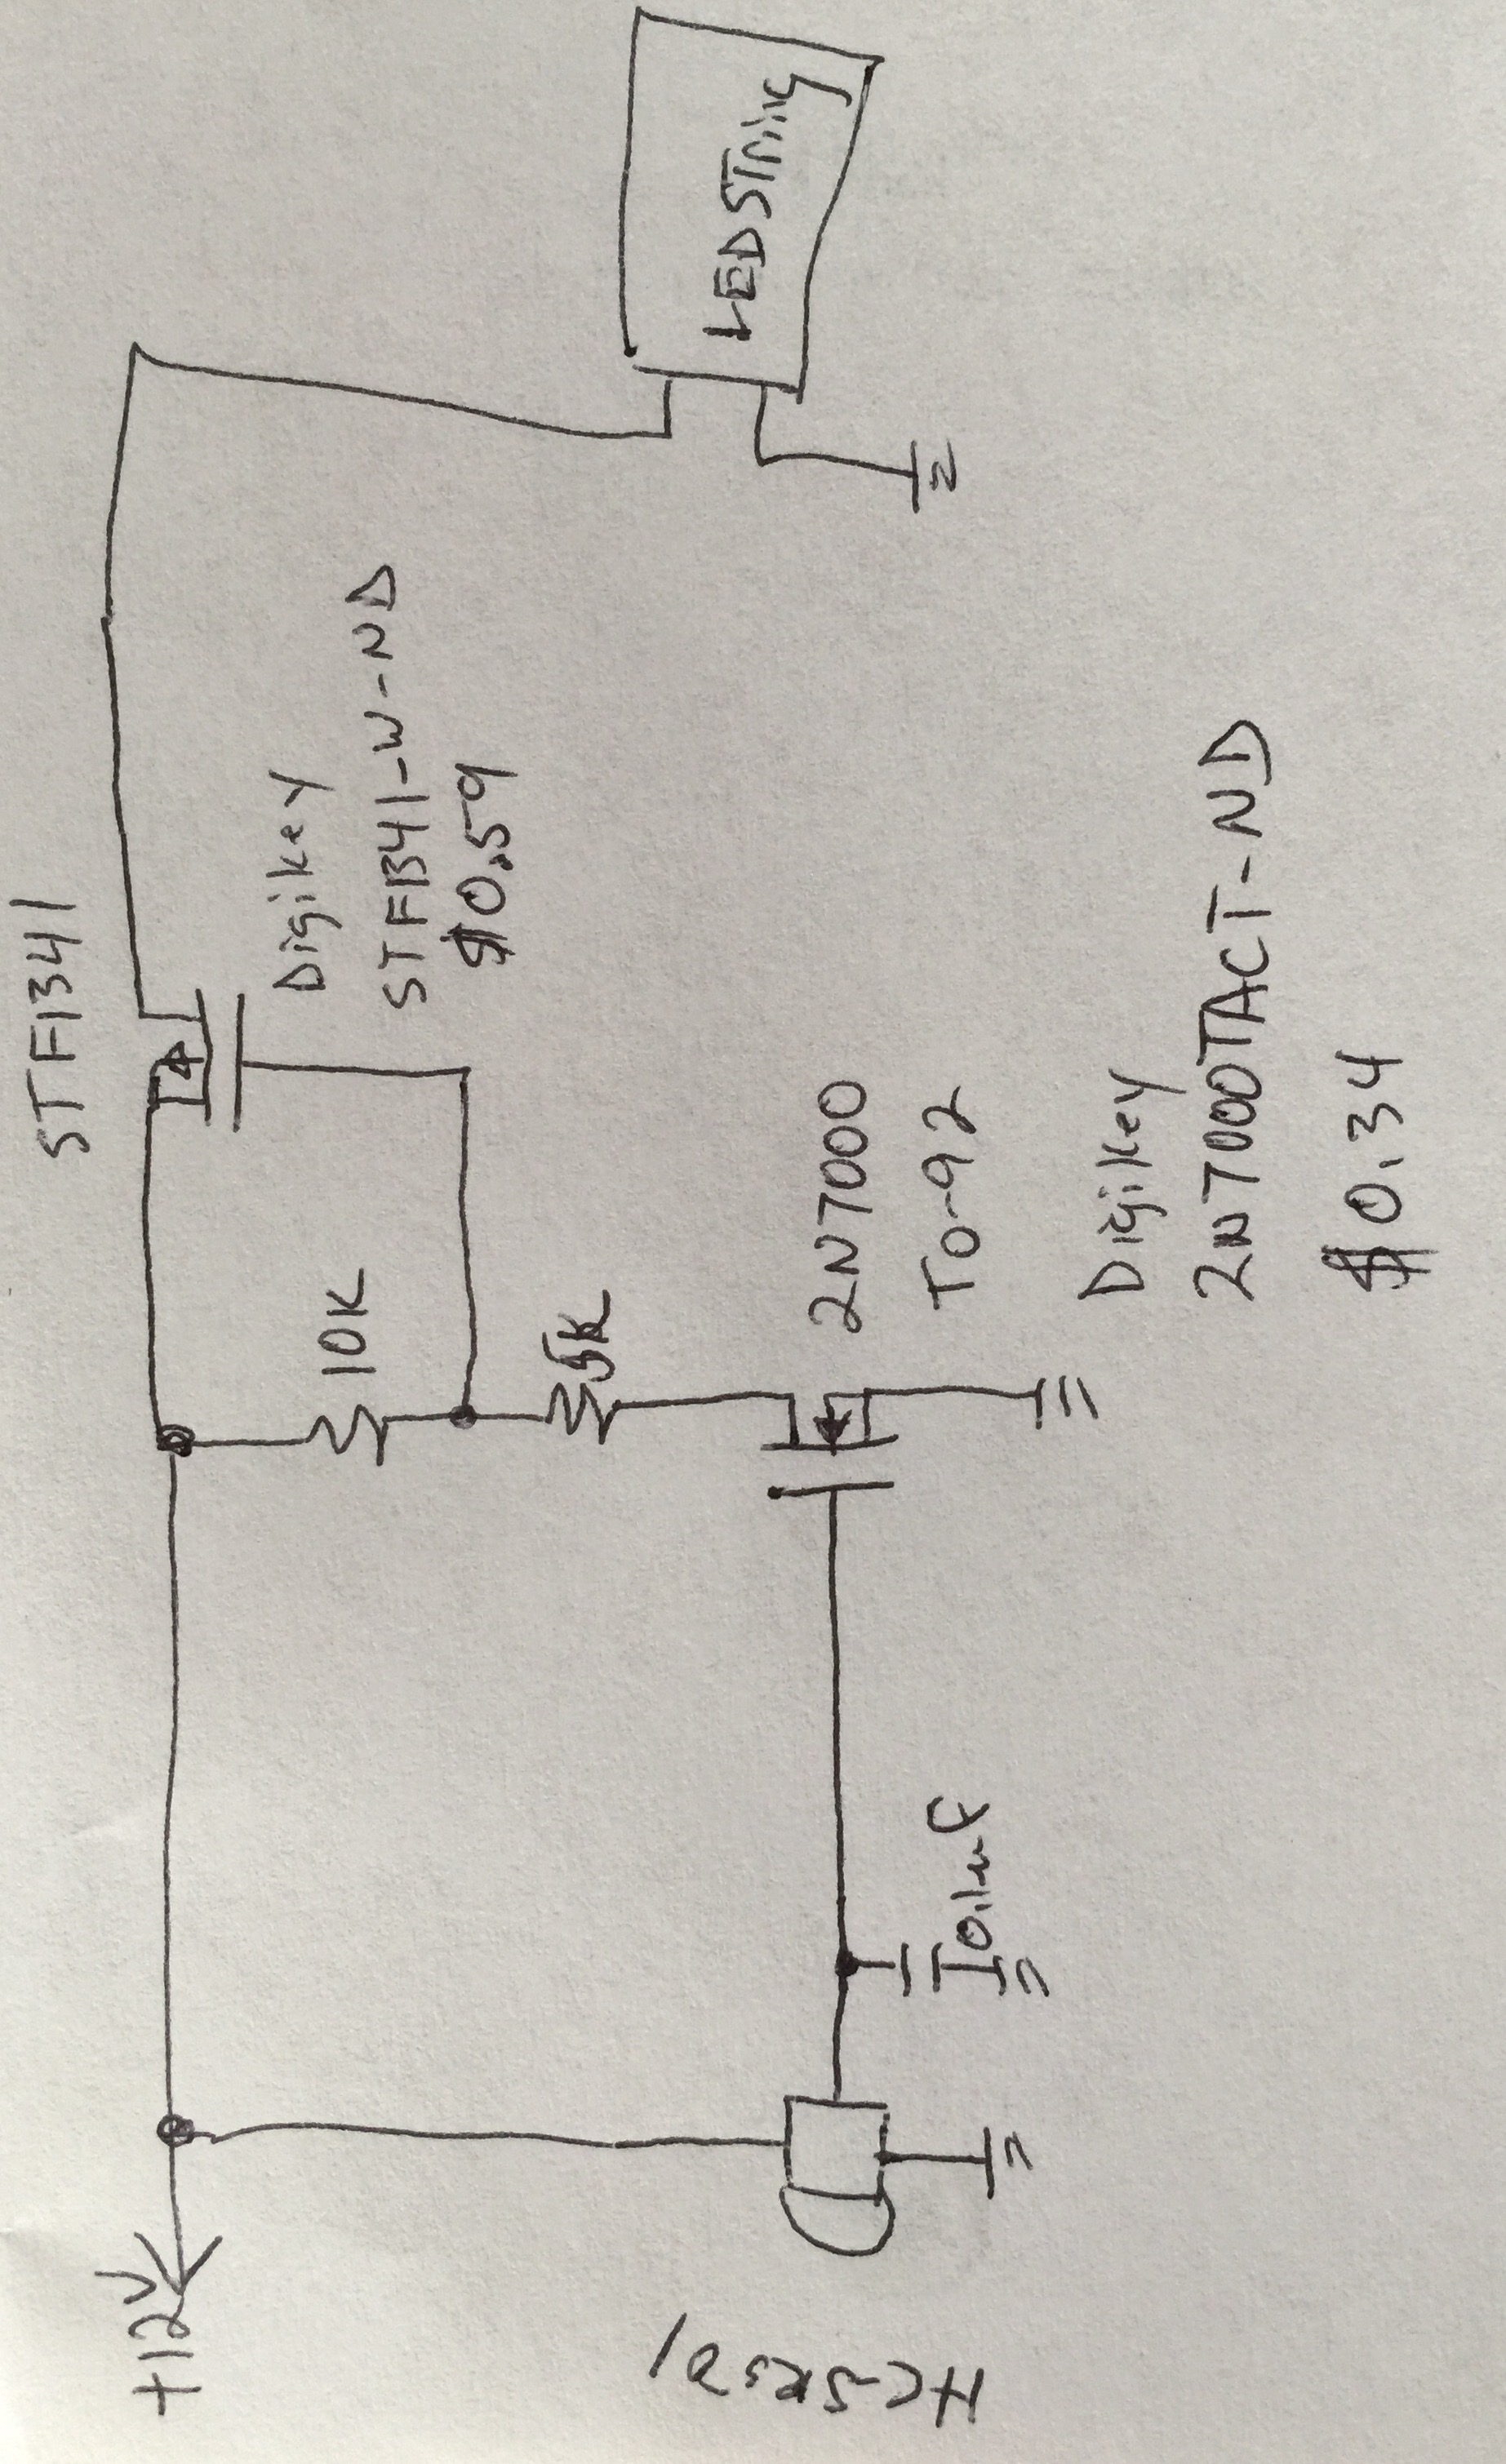 STF1341
+12V
Digikey
STF1341-W-ND
$0.59
10K
5K
LED String
HC-SR501
2N7000
TO-92
0.1uF
Digikey
2N7000TACT-ND
$0.34